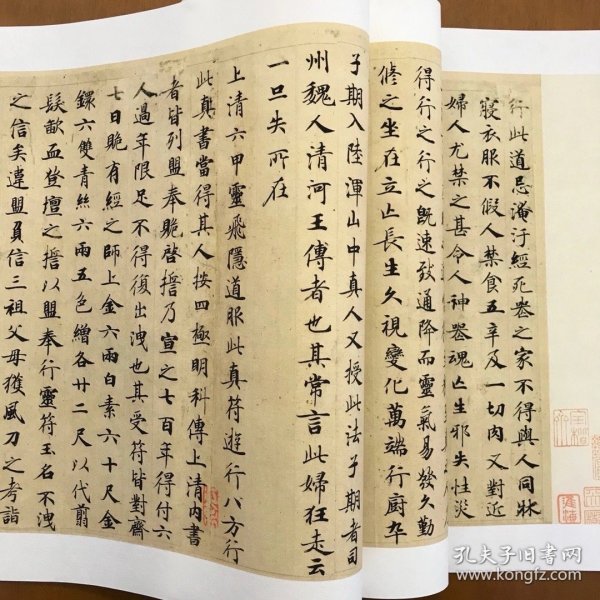 行此道忌淹汙經死喪之家不得與人同牀
寢衣服不假人禁食五辛及一切肉又對近
婦人尤禁之甚令人神喪魂亡生邪失性災
得行之行之既速致通降而靈氣易發久勤
脩之坐在立亡長生久視變化萬端行廚卒
子期入陸渾山中真人又授此法子期者司
州魏人清河王傳者也其常言此婦狂走云
一旦失所在
上清六甲靈飛隱道服此真符遊行八方行
此真書當得其人按四極明科傳上清內書
者皆列盟奉跪啓擔乃宣之七百年得付六
人過年限足不得復出洩也其受符皆對齋
七日跪有經之師上金六兩白素六十尺金
鐶六雙青絲六兩五色繒各廿二尺以代翦
髮歃血登壇之擔以盟奉行靈符玉名不洩
之信矣違盟負信三祖父母獲風刀之考詣
孔夫子旧书网
www.kongfz.com